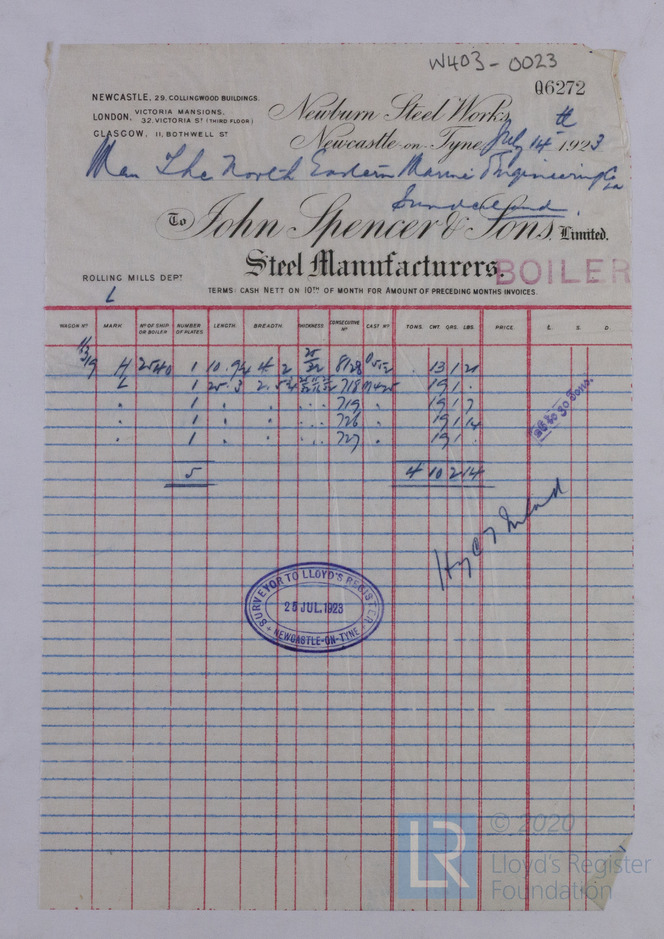 W403-0023
Q6272
NEWCASTLE, 29, COLLINGWOOD BUILDINGS.
LONDON, VICTORIA MANSIONS, 32, VICTORIA ST (THIRD FLOOR)
GLASGOW, 11, BOTHWELL ST
Newburn Steel Works,
Newcastle-on-Tyne, July 14th 1923
The North Eastern Marine Engineering Co
Sunderland
To John Spencer & Sons, Limited.
Steel Manufacturers.
BOILER
ROLLING MILLS DEPT
L
TERMS: CASH NETT ON 10TH OF MONTH FOR AMOUNT OF PRECEDING MONTHS INVOICES.
WAGON No MARK No OF SHIP OR BOILER NUMBER OF PLATES LENGTH. BREADTH. THICKNESS CONSECUTIVE No CAST No TONS. CWT. QRS. LBS. PRICE. £. S. D.
H 2540 1 10 . 9¼ 4 . 2 8128 13 1 21
L 1 25 . 3 2 . 5¾ 718 19 1 .
" 1 " " 719 " 19 1 7
" 1 " " 726 " 19 1 14
" 1 " " 727 " 19 1 .
5 4 10 2 14
SURVEYOR TO LLOYD'S REGISTER
25 JUL. 1923
NEWCASTLE-ON-TYNE
© 2020
LR
Lloyd's Register
Foundation